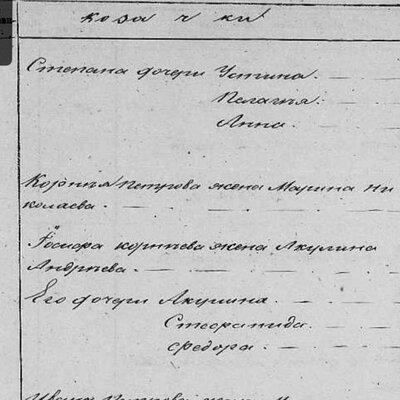 коза ч ки
Степана дочери Устина.
Пелагея.
Анна.
Корнея Петрова жена Марина Ни
колаева.
Ѳедора корнѣева жена Акулина
Андрѣева.
Его дочери Акулина.
Стефанида.
Ѳедора.
Ивана Петрова жена